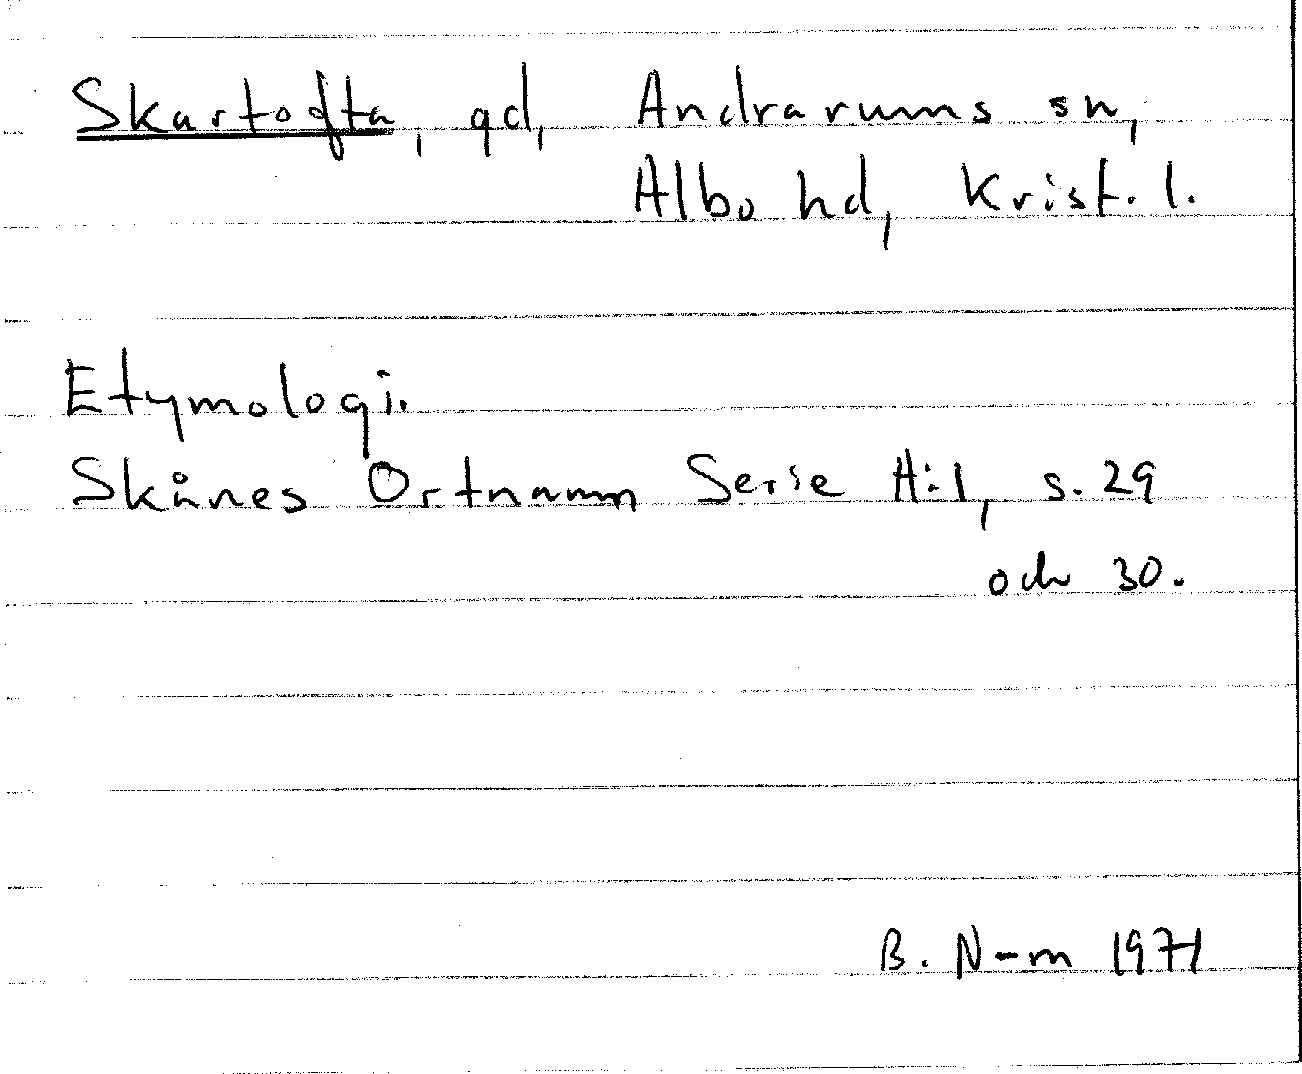 Skartofta, gd, Andrarums sn,
Albo hd, Krist. l.
Etymologi.
Skånes Ortnamn Serie A:1, s. 29
och 30.
B. N-m 1971